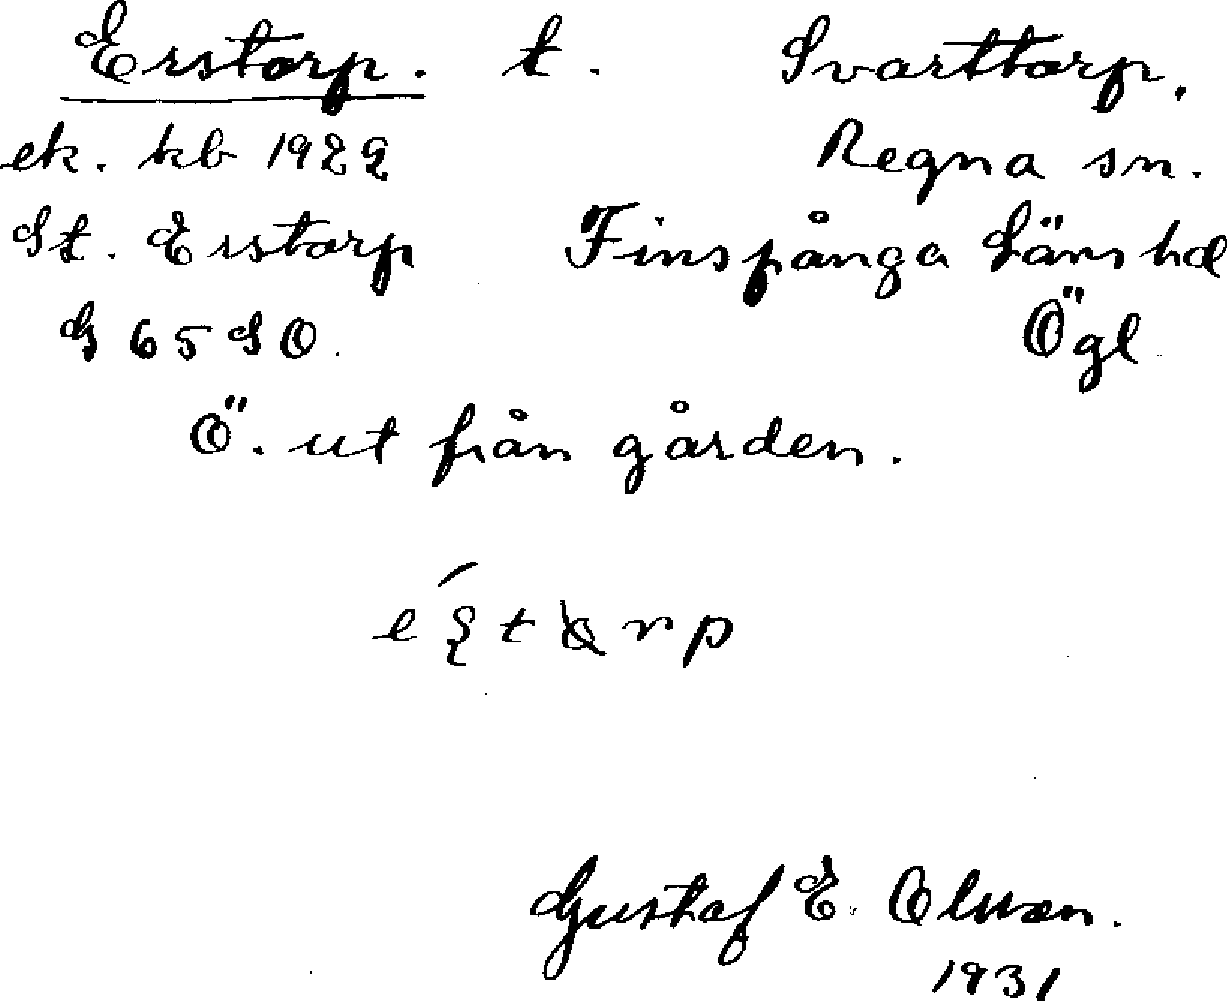 Erstorp. t. Svarttorp.
ek. kb 1922 Regna sn.
St. Erstorp Finspånga Läns hd
G 65 SO. Ögl
Ö. ut från gården.
Gustaf E. Olsson.
1931